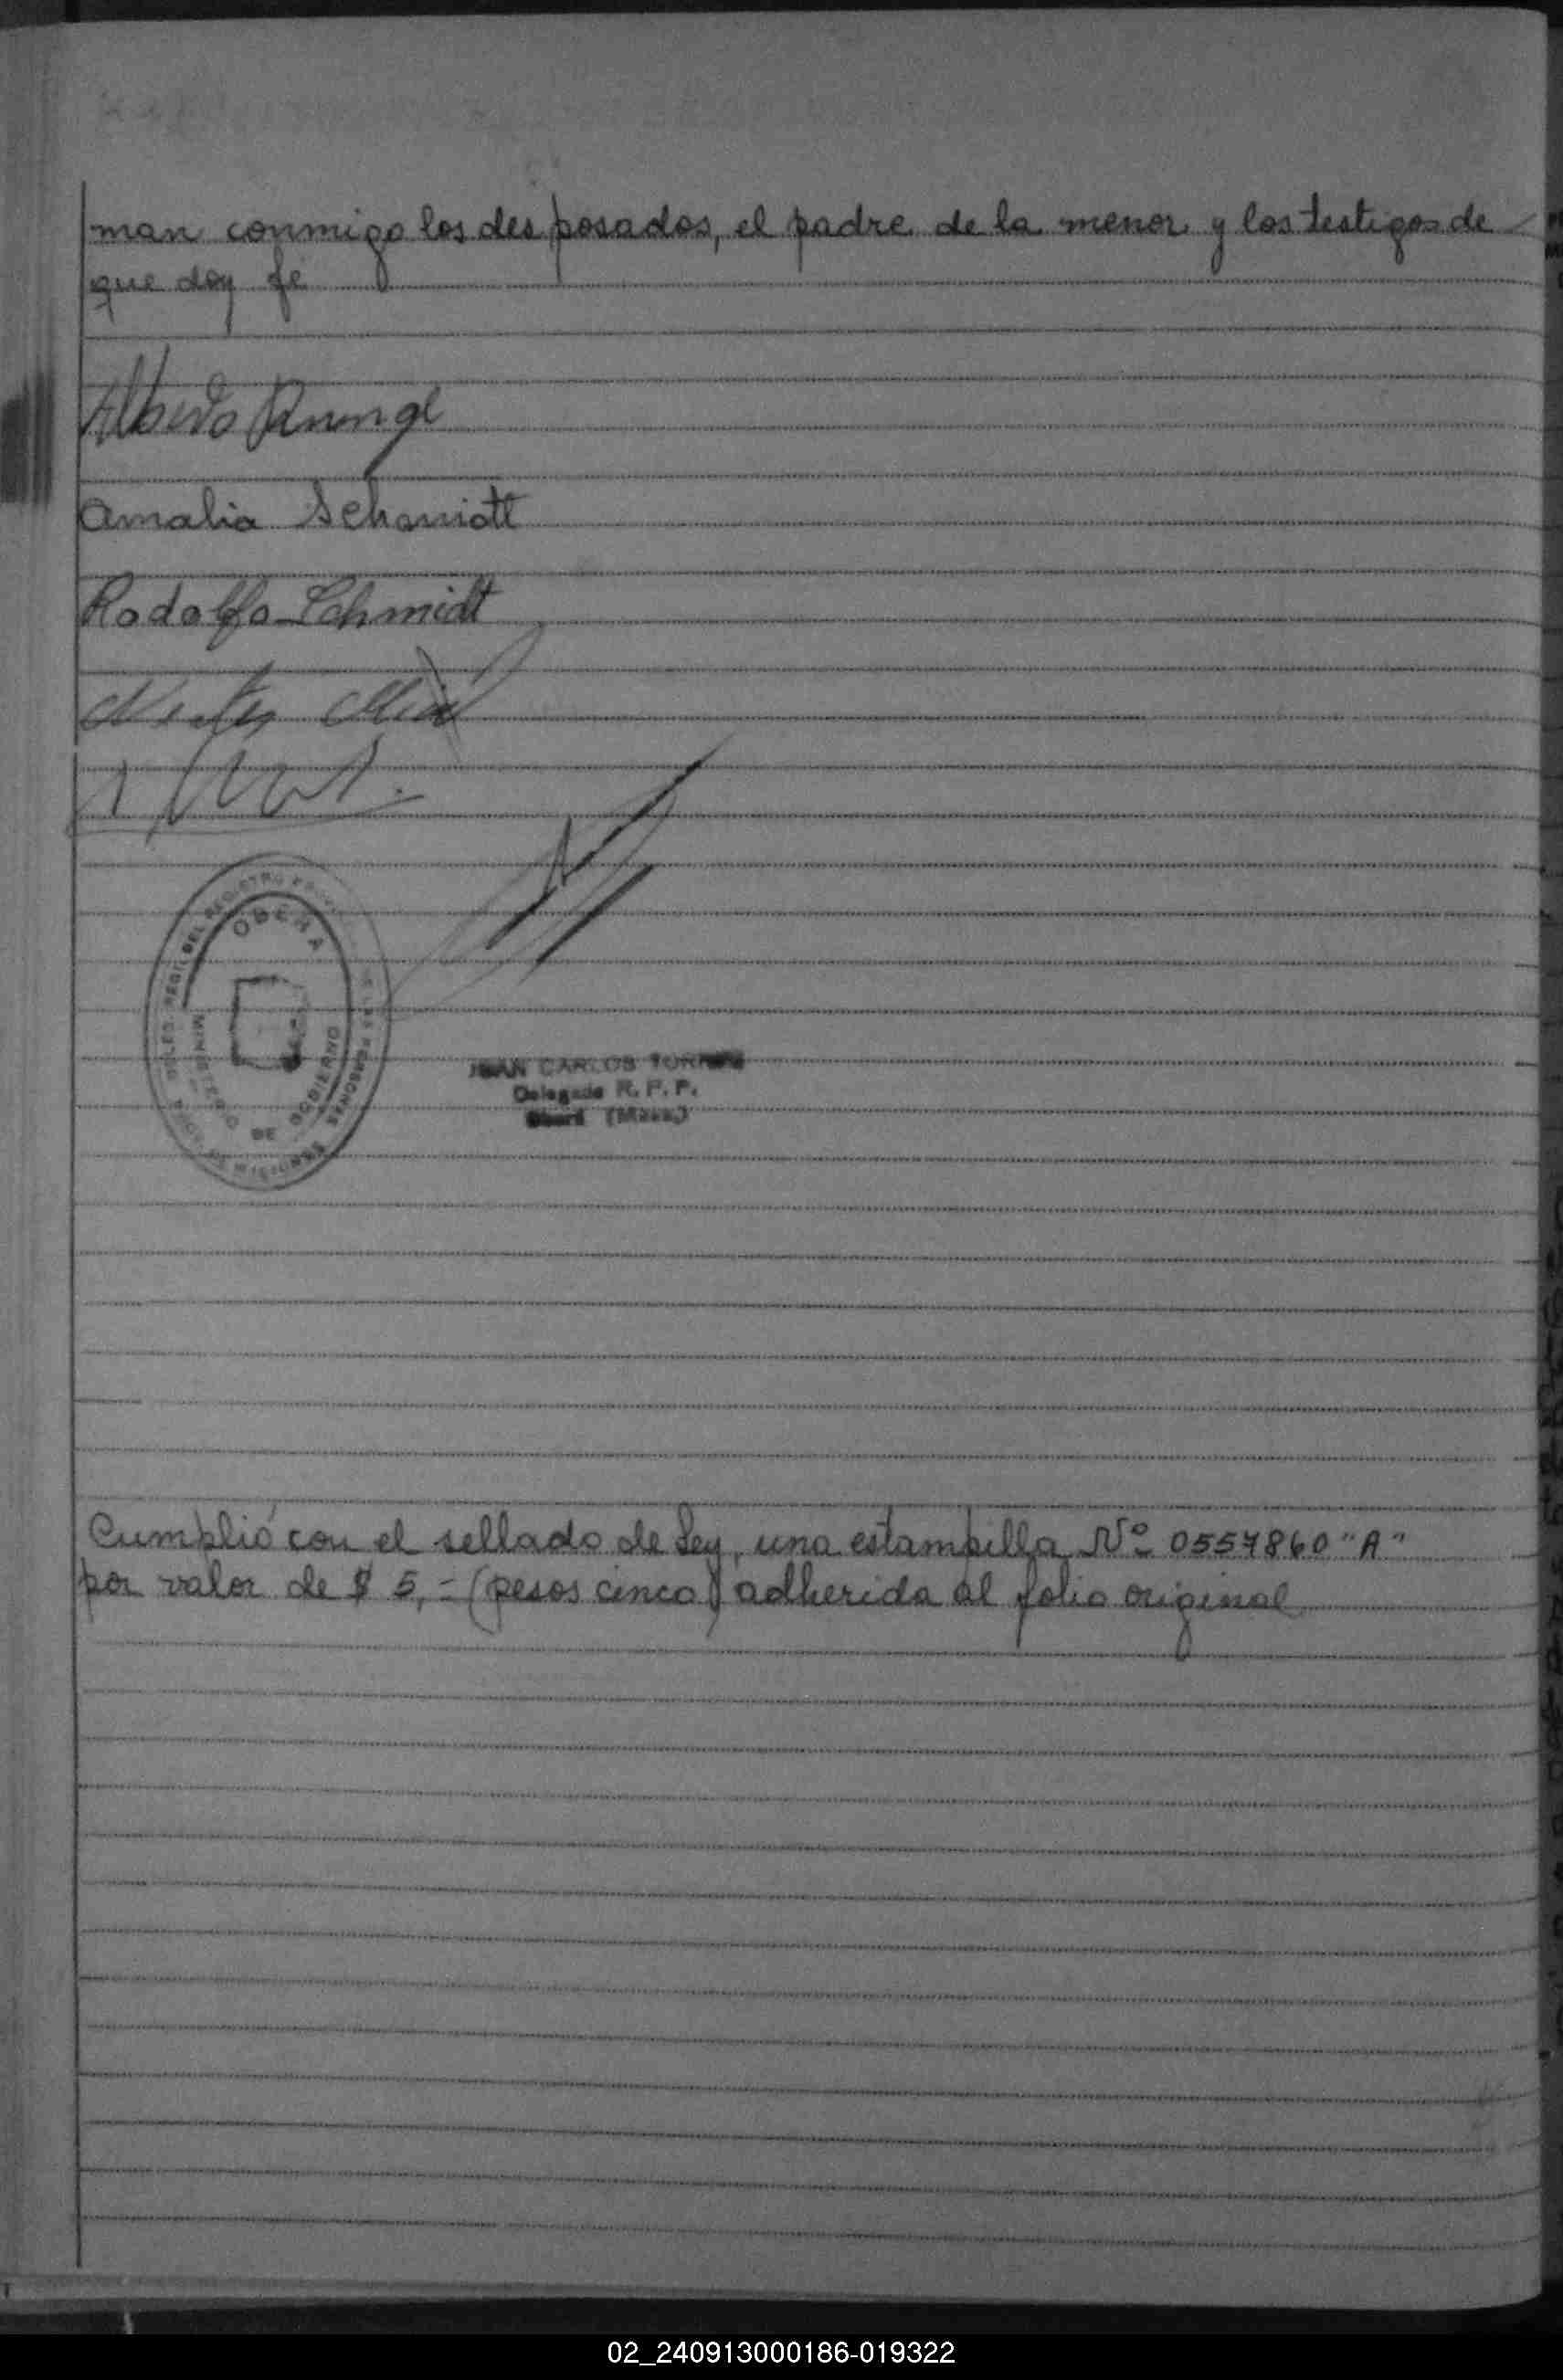 man conmigo los desposados, el padre de la menor y los testigos de
que doy fé
Alberto Runge
Amalia Schmidt
Rodolfo Schmidt
OBERA
MINISTERIO DE GOBIERNO
PROV. DE MISIONES
JUAN CARLOS
Delegado R. P. P.
Oberá (Mnes.)
Cumplió con el sellado de Ley, una estampilla Nº 0557860 "A"
por valor de $ 5,= (pesos cinco) adherida al folio original
02_240913000186-019322